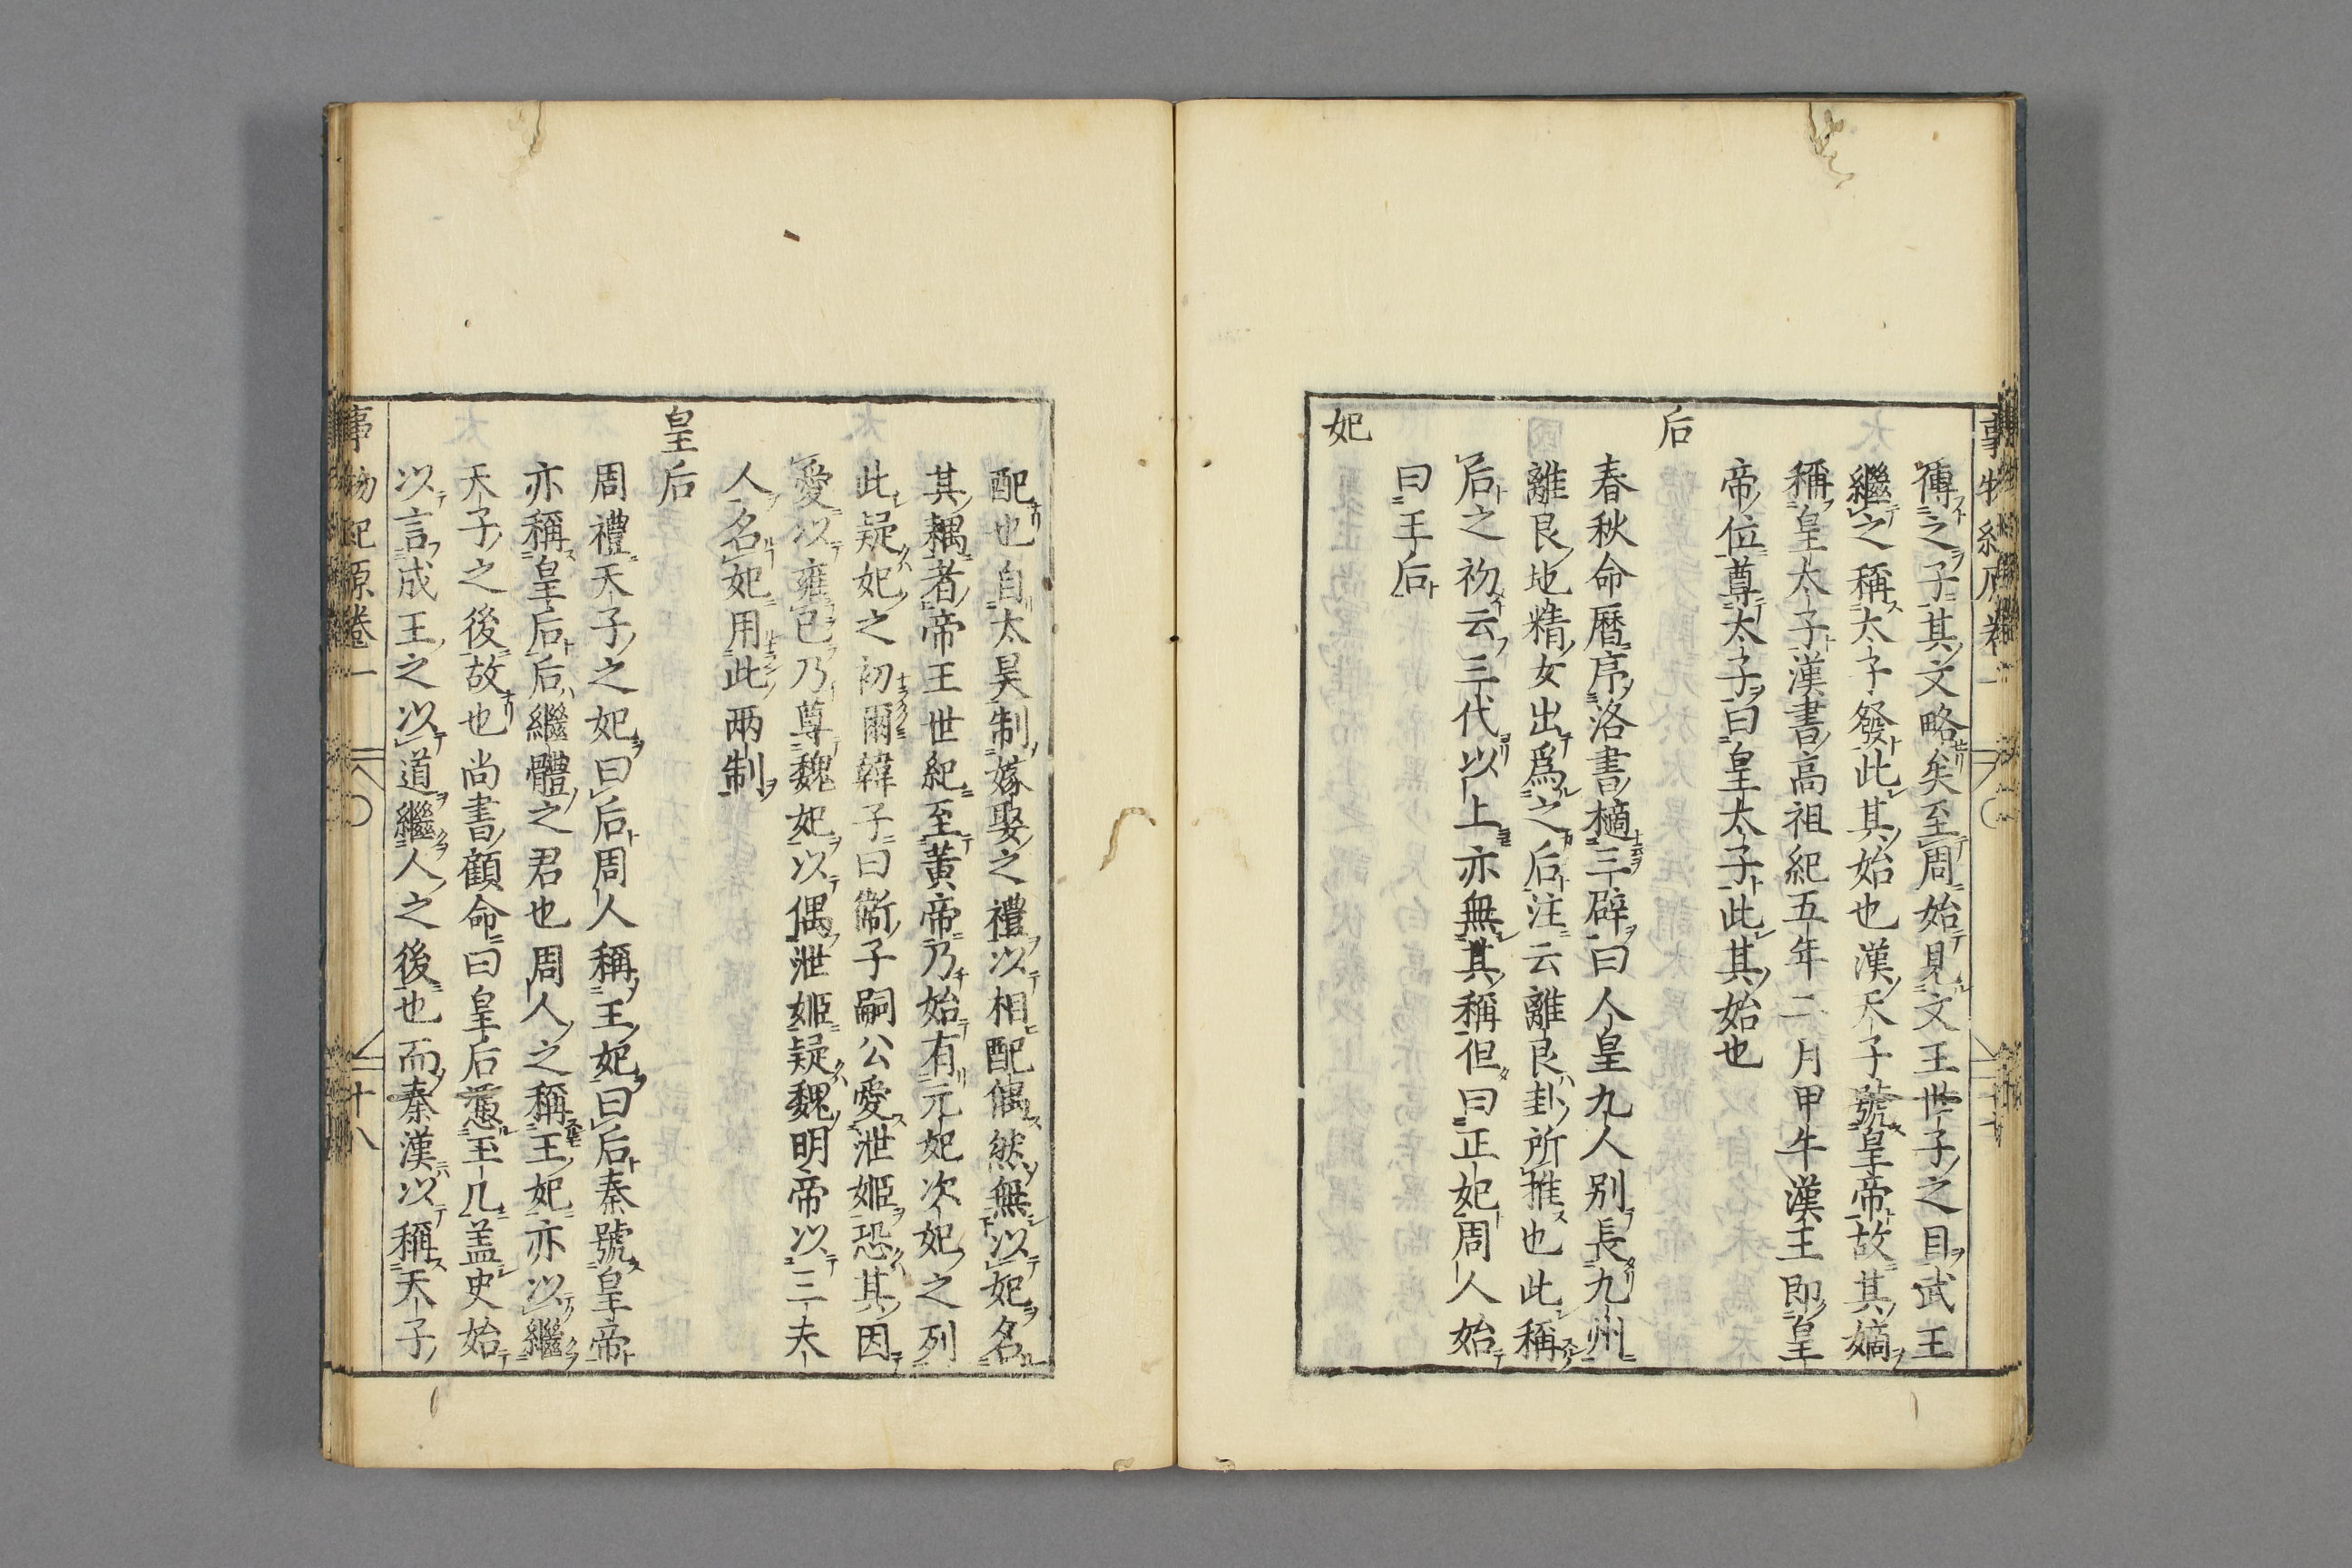 傳之子其文略矣至周始見文王世子之目武王
繼之稱太子發此其始也漢天子號皇帝故其嫡
稱皇太子漢書高祖紀五年二月甲午漢王即皇
帝位尊太子曰皇太子此其始也
后
春秋命曆序洛書摘三辟曰人皇九人別長九州
離艮地精女出爲之后注云離艮卦所推也此稱
后之初云三代以上亦無其稱但曰正妃周人始
曰王后
妃
配也自太昊制嫁娶之禮以相配偶然無以妃名
其耦者帝王世紀至黃帝乃始有元妃次妃之列
此疑妃之初爾韓子曰衞子嗣公愛泄姬恐其因
愛以雍已乃尊魏妃以偶泄姬疑魏明帝以三夫
人名妃用此兩制
皇后
周禮天子之妃曰后周人稱王妃曰后秦號皇帝
亦稱皇后后繼體之君也周人之稱王妃亦以繼
天子之後故也尚書顧命曰皇后憑玉几盖史始
以言成王之以道繼人之後也而秦漢以稱天子
事物紀原卷一
十八